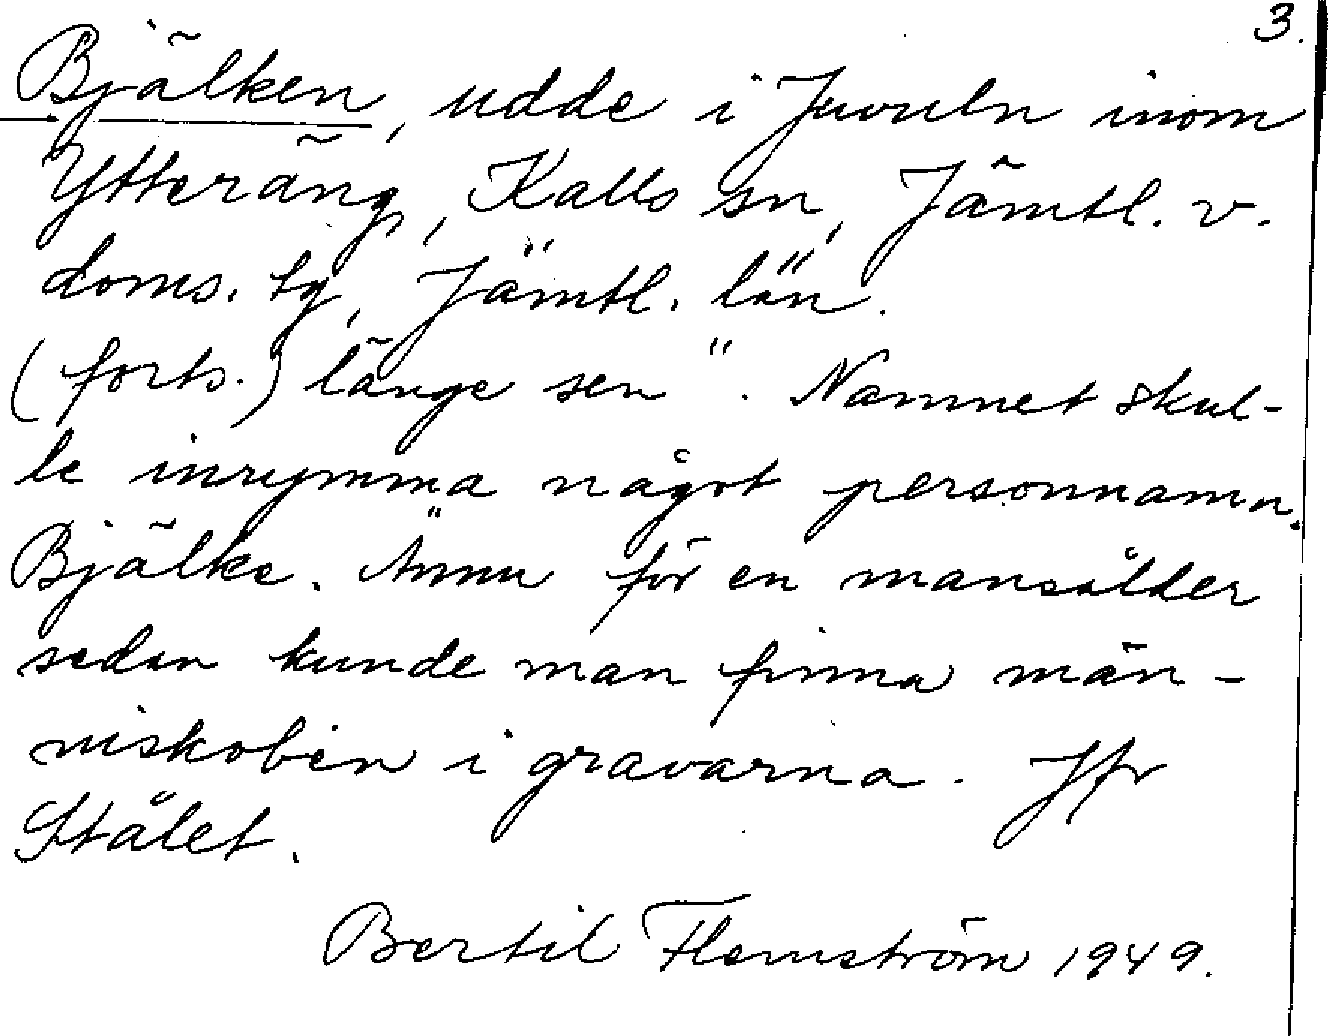 3.
Bjälken, udde i Juvuln inom
Ytteräng, Kalls sn, Jämtl. v.
doms. tg, Jämtl. län.
(forts.) länge sen". Namnet skul-
le inrymma något personnamn.
Bjälke. Ännu för en mansålder
sedan kunde man finna män-
niskoben i gravarna. Jfr
Stålet.
Bertil Flemström 1949.